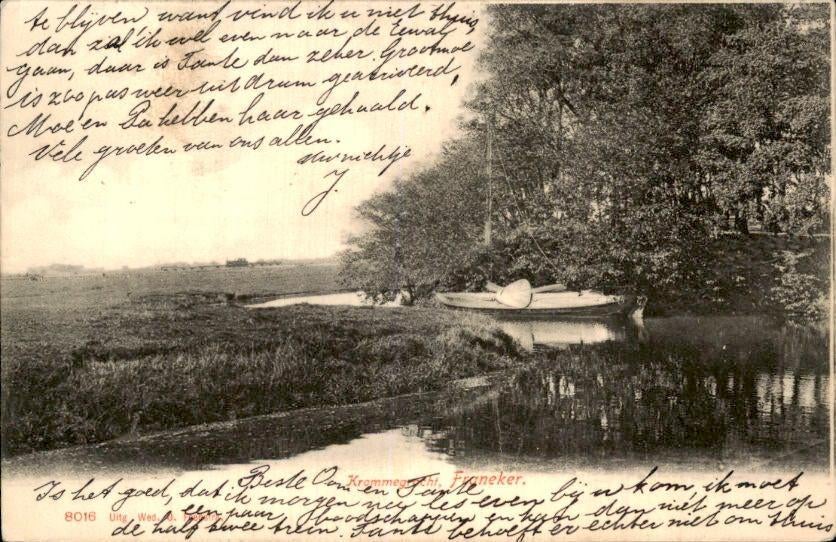 te blijven want vind ik u niet thuis
dan zal ik wel even naar de Eewal
gaan, daar is Tante dan zeker. Grootmoe
is zoo pas weer uit drum gearriveerd,
Moe en Pa hebben haar gehaald.
Vele groeten van ons allen.
uw nichtje
J
Krommegracht, Franeker.
Beste Oom en Tante
Is het goed, dat ik morgen na les even bij u kom, ik moet
een paar boodschappen en kan dan niet meer op
de half twee trein. Tante behoeft er echter niet om thuis
8016 Uitg. Wed. J.